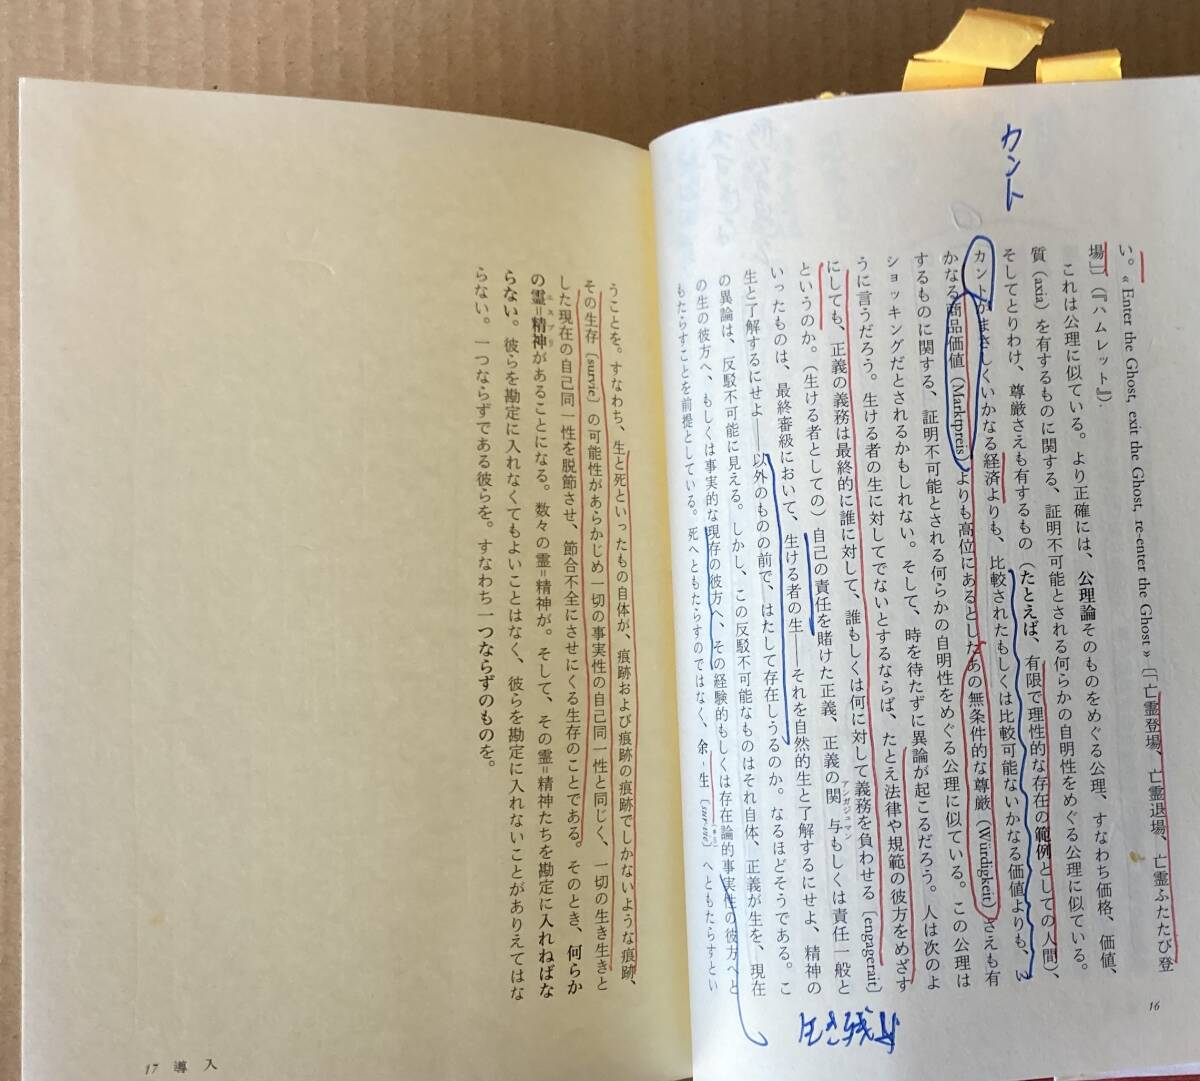 カント
い。« Enter the Ghost, exit the Ghost, re-enter the Ghost »〔「亡霊登場、亡霊退場、亡霊ふたたび登
場」〕(『ハムレット』)。
これは公理に似ている。より正確には、公理論そのものをめぐる公理、すなわち価格、価値、
質(axia)を有するものに関する、証明不可能とされる何らかの自明性をめぐる公理に似ている。
そしてとりわけ、尊厳さえも有するもの(たとえば、有限で理性的な存在の範例としての人間)、
カントがまさしくいかなる経済よりも、比較されたもしくは比較可能ないかなる価値よりも、い
かなる商品価値(Markpreis)よりも高位にあるとしたあの無条件的な尊厳(Würdigkeit)さえも有
するものに関する、証明不可能とされる何らかの自明性をめぐる公理に似ている。この公理は
ショッキングだとされるかもしれない。そして、時を待たずに異論が起こるだろう。人は次のよ
うに言うだろう。生ける者の生に対してでないとするならば、たとえ法律や規範の彼方をめざす
にしても、正義の義務は最終的に誰に対して、誰もしくは何に対して義務を負わせる〔engagerait〕
というのか。(生ける者としての)自己の責任を賭けた正義、正義の関与もしくは責任一般と
アンガジュマン
いったものは、最終審級において、生ける者の生——それを自然的生と了解するにせよ、精神の
生と了解するにせよ——以外のものの前で、はたして存在しうるのか。なるほどそうである。こ
の異論は、反駁不可能に見える。しかし、この反駁不可能なものはそれ自体、正義が生を、現在
の生の彼方へ、もしくは事実的な現存の彼方へ、その経験的もしくは存在論的事実性の彼方へと
もたらすことを前提としている。死へともたらすのではなく、余-生〔sur-vie〕へともたらすとい
生き残り
16
うことを。すなわち、生と死といったもの自体が、痕跡および痕跡の痕跡でしかないような痕跡、
その生存〔survie〕の可能性があらかじめ一切の事実性の自己同一性と同じく、一切の生き生きと
した現在の自己同一性を脱節させ、節合不全にさせにくる生存のことである。そのとき、何らか
の霊=精神があることになる。数々の霊=精神が。そして、その霊=精神たちを勘定に入れねばな
エスプリ
らない。彼らを勘定に入れなくてもよいことはなく、彼らを勘定に入れないことがありえてはな
らない。一つならずである彼らを。すなわち一つならずのものを。
17 導入